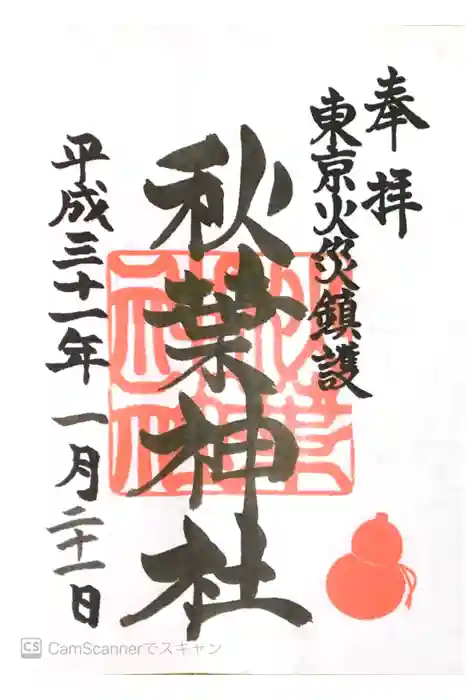 奉拝
東京火災鎮護
秋葉神社
平成三十一年 一月二十一日
CamScannerでスキャン